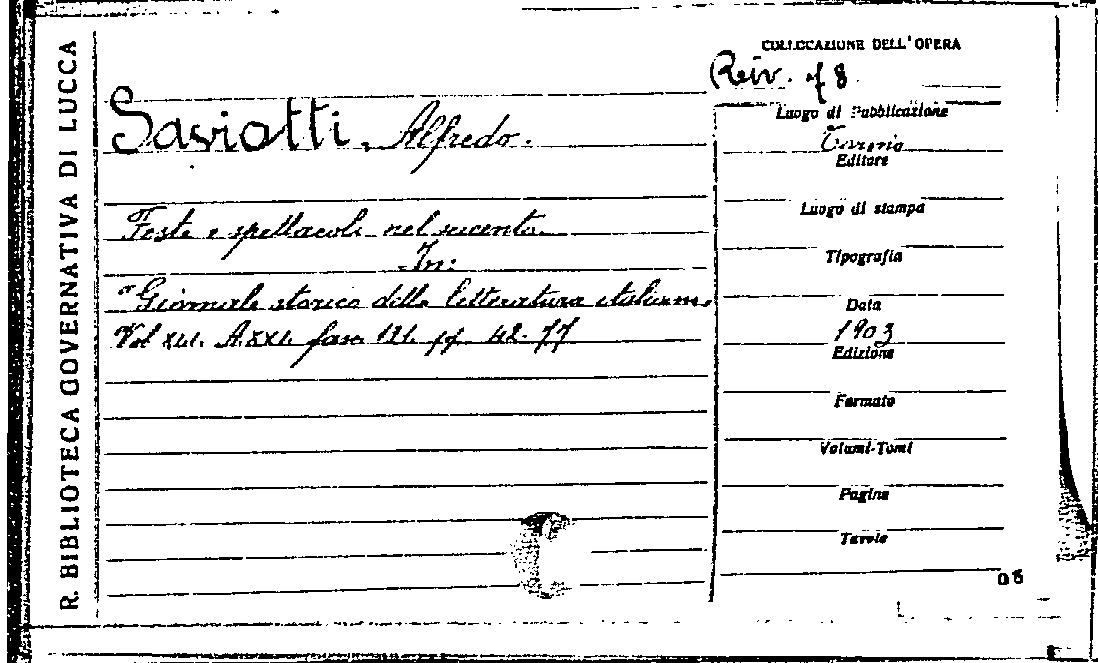 R. BIBLIOTECA GOVERNATIVA DI LUCCA
COLLOCAZIONE DELL'OPERA
Riv. 78.
Saviotti, Alfredo.
Luogo di Pubblicazione
Torino
Editore
Feste e spettacoli nel seicento.
In:
"Giornale storico della letteratura italiana.
Vol XLI. A. XXI. fasc 121. pp. 42-77
Luogo di stampa
Tipografia
Data
1903
Edizione
Formato
Volumi-Tomi
Pagine
Tavole